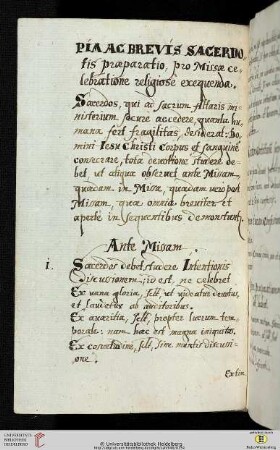 PIA AC BREVIS SACERDO
tis præparatio, pro Missæ ce,
lebratione religiosè exequenda.
Sacerdos, qui ac sacrum Altaris mi,
nisterium secure accedere, quanta hu,
mana fert fragilitas, desiderat: Do,
mini Iesu Christi Corpus et sanguinē
consecrare, tota devotione studere de,
bet, ut aliqua observet ante Missam,
quædam in Missa, quædam vero post
Missam, quæ omnia breviter et
aperte in sequentibus demonstant,
Ante Missam.
1. Sacerdos debet studere Intentionis
Discussionem, id est, ne celebret
Ex vana gloria, scilt, ut videatur devotus,
et laudetur ab auditoribus.
Ex avaritia, scilt, propter lucrum tem,
porale: nam hæc est magna iniquitas.
Ex consuetudine, scilt, sine mentis discussi,
one.
Ex tim,
UNIVERSITÄTS-
BIBLIOTHEK
HEIDELBERG
© Universitätsbibliothek Heidelberg